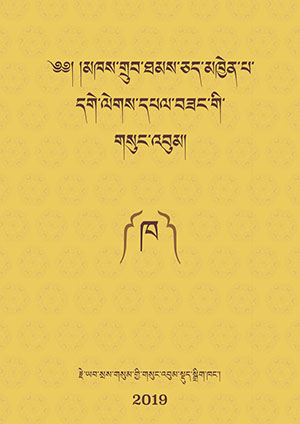 ༄༅། །མཁས་གྲུབ་ཐམས་ཅད་མཁྱེན་པ་
དགེ་ལེགས་དཔལ་བཟང་གི་
གསུང་འབུམ།
༼ཁ༽
རྗེ་ཡབ་སྲས་གསུམ་གྱི་གསུང་འབུམ་སྡུད་སྒྲིག་ཁང་།
2019